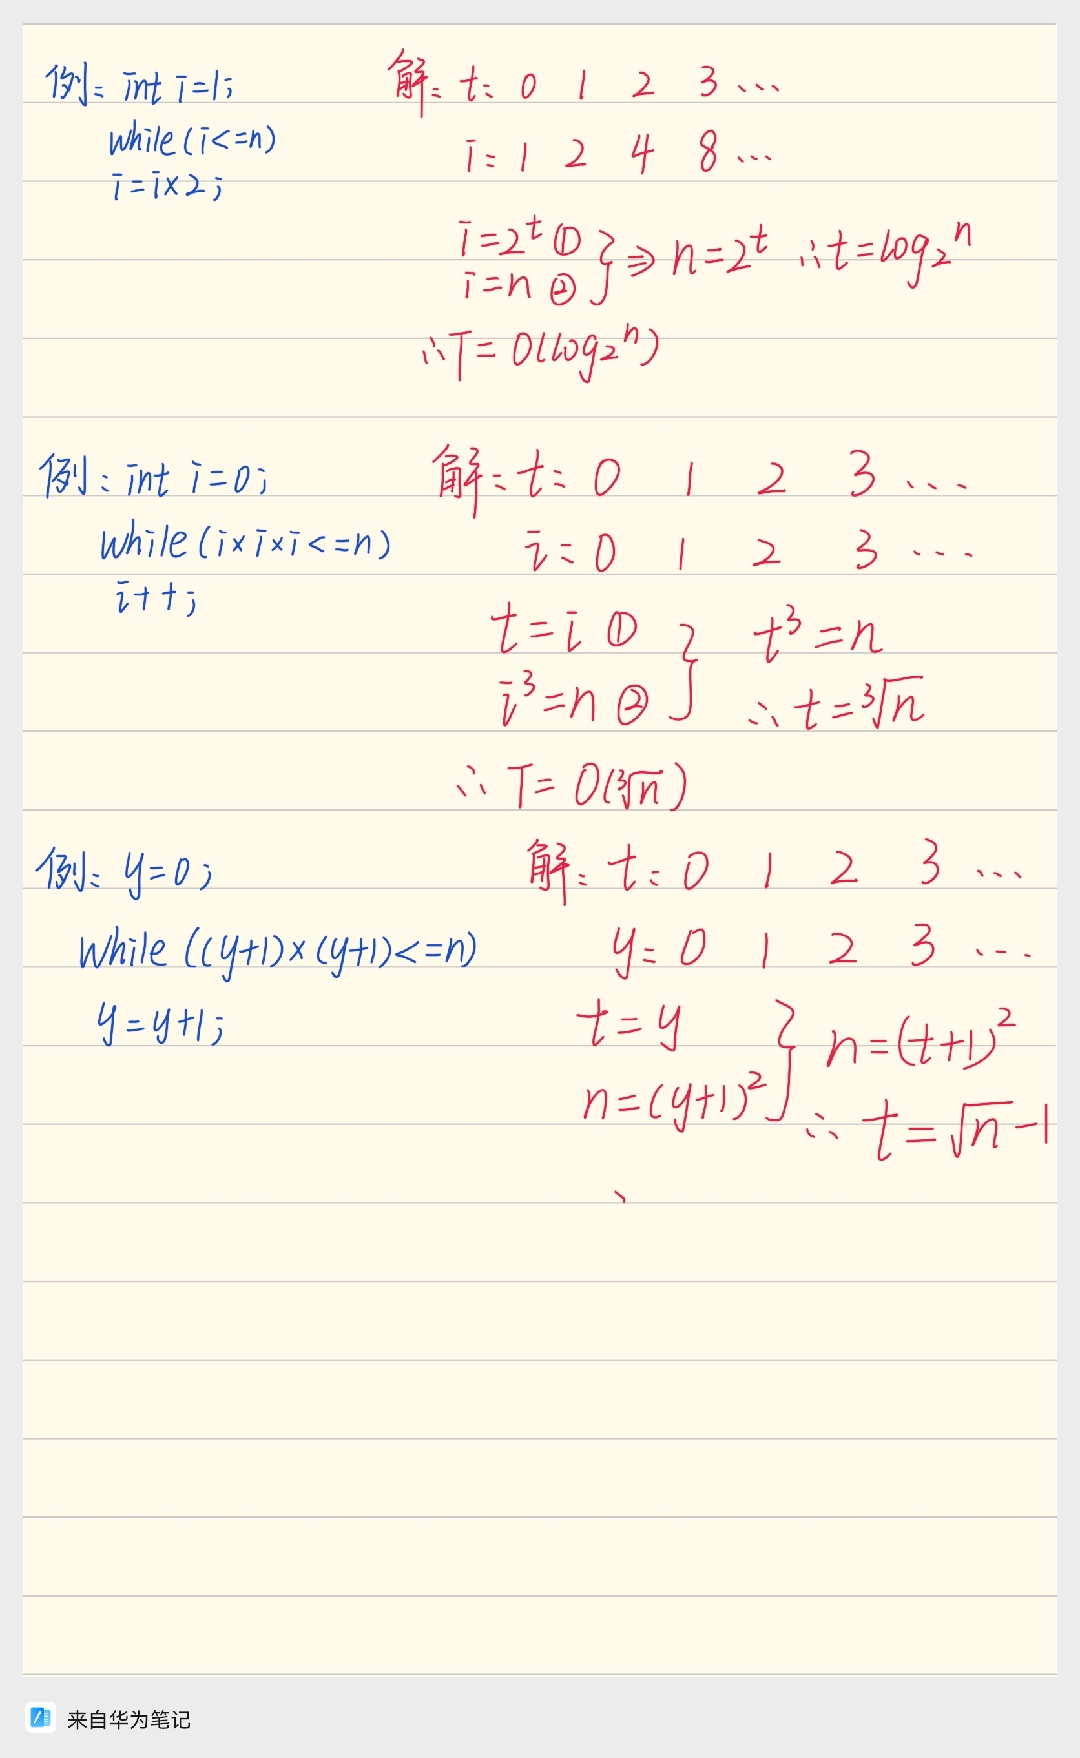 例: int i=1;
while(i<=n)
i=i×2;
解: t: 0 1 2 3 ...
i: 1 2 4 8 ...
i=2^t ①
i=n ②
} ⇒ n=2^t ∴t=log₂ⁿ
∴T=O(log₂ⁿ)
例: int i=0;
while(i×i×i<=n)
i++;
解: t: 0 1 2 3 ...
i: 0 1 2 3 ...
t=i ①
i³=n ②
} t³=n
∴t=³√n
∴T=O(³√n)
例: y=0;
while((y+1)×(y+1)<=n)
y=y+1;
解: t: 0 1 2 3 ...
y: 0 1 2 3 ...
t=y
n=(y+1)²
} n=(t+1)²
∴t=√n-1
来自华为笔记